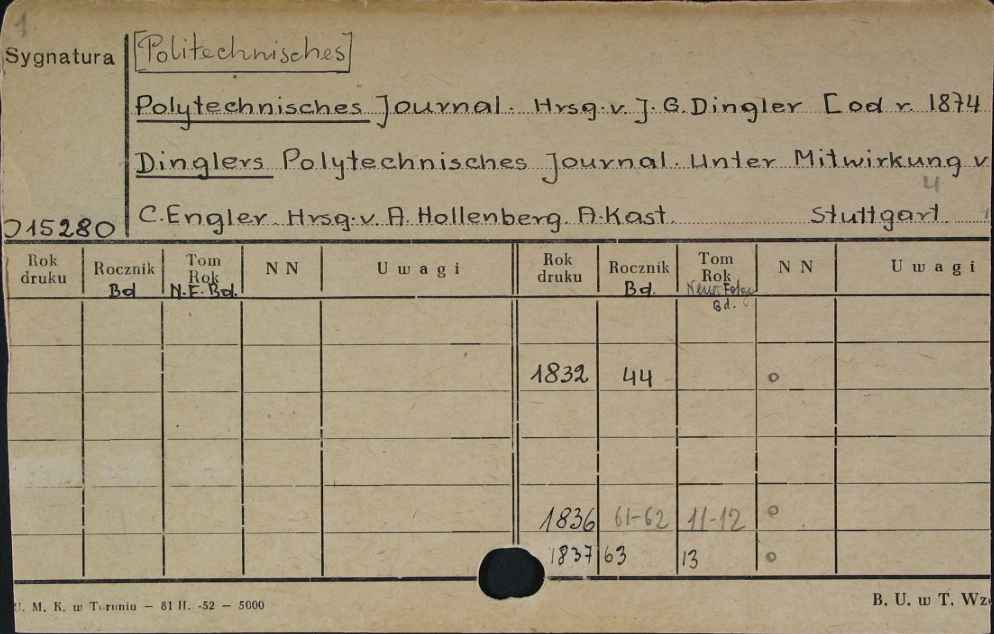 1
[Politechnisches]
Sygnatura
Polytechnisches Journal. Hrsg. v. J. G. Dingler [od r. 1874
Dinglers Polytechnisches Journal. Unter Mitwirkung v
4
015280 C. Engler Hrsg. v. A. Hollenberg. A. Kast. Stuttgart
Rok druku Rocznik Bd Tom Rok N.F. Bd. N N Uwagi Rok druku Rocznik Bd. Tom Rok Neue Folge Bd. N N Uwagi
1832 44 o
1836 61-62 11-12 o
1837 63 13 o
U. M. K. w Toruniu – 81 II. -52 – 5000 B. U. w T. Wz